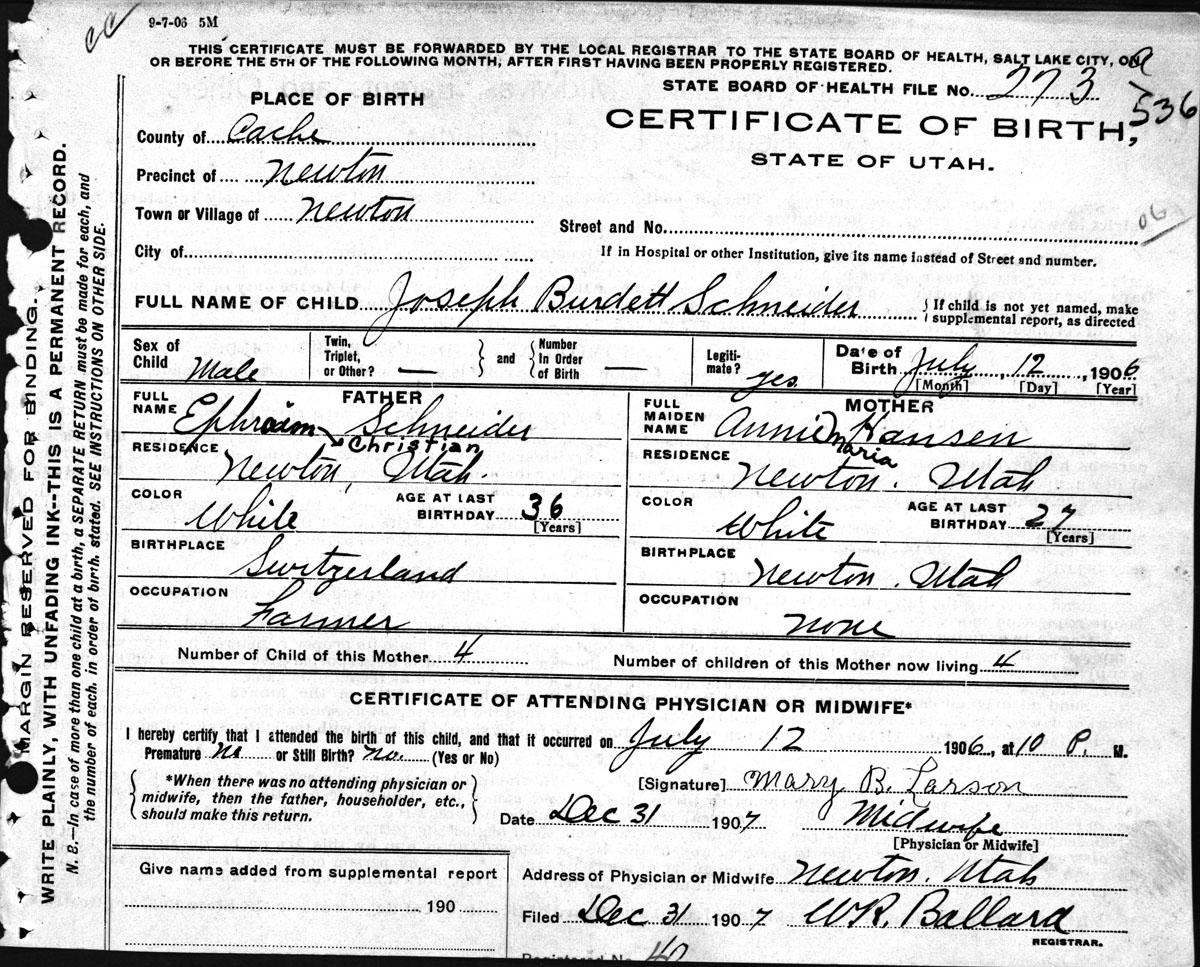 9-7-06 5M
THIS CERTIFICATE MUST BE FORWARDED BY THE LOCAL REGISTRAR TO THE STATE BOARD OF HEALTH, SALT LAKE CITY, ON
OR BEFORE THE 5TH OF THE FOLLOWING MONTH, AFTER FIRST HAVING BEEN PROPERLY REGISTERED.
STATE BOARD OF HEALTH FILE No. 273
536
PLACE OF BIRTH
CERTIFICATE OF BIRTH,
STATE OF UTAH.
County of Cache
Precinct of Newton
Town or Village of Newton
Street and No.
06
City of
If in Hospital or other Institution, give its name instead of Street and number.
FULL NAME OF CHILD Joseph Burdett Schneider { If child is not yet named, make supplemental report, as directed
Sex of Child Male
Twin, Triplet, or Other? — } and { Number In Order of Birth —
Legitimate? yes
Date of Birth July 12, 1906
[Month] [Day] [Year]
FATHER
FULL NAME Ephraim Schneider
Christian
RESIDENCE Newton, Utah.
COLOR White
AGE AT LAST BIRTHDAY 36 [Years]
BIRTHPLACE Switzerland
OCCUPATION Farmer
MOTHER
FULL MAIDEN NAME Annie Hansen
Maria
RESIDENCE Newton. Utah
COLOR White
AGE AT LAST BIRTHDAY 27 [Years]
BIRTHPLACE Newton. Utah
OCCUPATION none
Number of Child of this Mother 4
Number of children of this Mother now living 4
CERTIFICATE OF ATTENDING PHYSICIAN OR MIDWIFE*
I hereby certify that I attended the birth of this child, and that it occurred on July 12 1906, at 10 P. M.
Premature no or Still Birth? no. (Yes or No)
{ *When there was no attending physician or midwife, then the father, householder, etc., should make this return. }
[Signature] Mary B. Larson
Date Dec 31 1907 Midwife
[Physician or Midwife]
Give name added from supplemental report
190
Address of Physician or Midwife Newton. Utah
Filed Dec 31 1907 W R. Ballard
REGISTRAR.
Registered No. 40
MARGIN RESERVED FOR BINDING.
WRITE PLAINLY, WITH UNFADING INK--THIS IS A PERMANENT RECORD.
N. B.—In case of more than one child at a birth, a SEPARATE RETURN must be made for each, and
the number of each, in order of birth, stated. SEE INSTRUCTIONS ON OTHER SIDE.